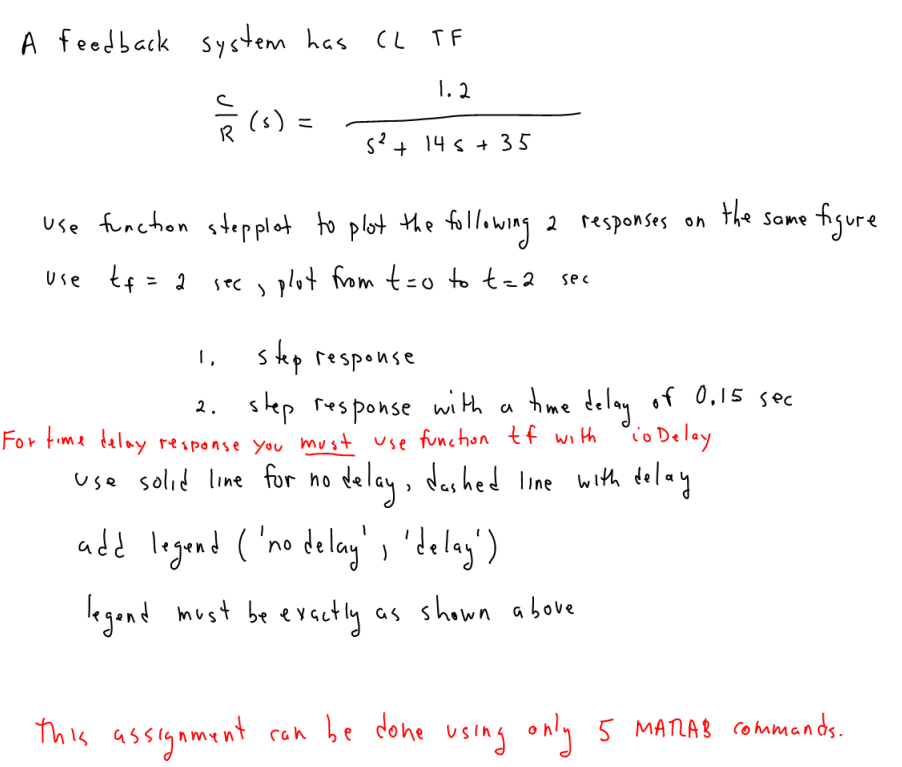 A feedback system has CL TF
C/R (s) = 1.2 / (s² + 14s + 35)
use function stepplot to plot the following 2 responses on the same figure
use tf = 2 sec, plot from t=0 to t=2 sec
1. step response
2. step response with a time delay of 0.15 sec
For time delay response you must use function tf with 'ioDelay
use solid line for no delay, dashed line with delay
add legend ('no delay', 'delay')
legend must be exactly as shown above
This assignment can be done using only 5 MATLAB commands.